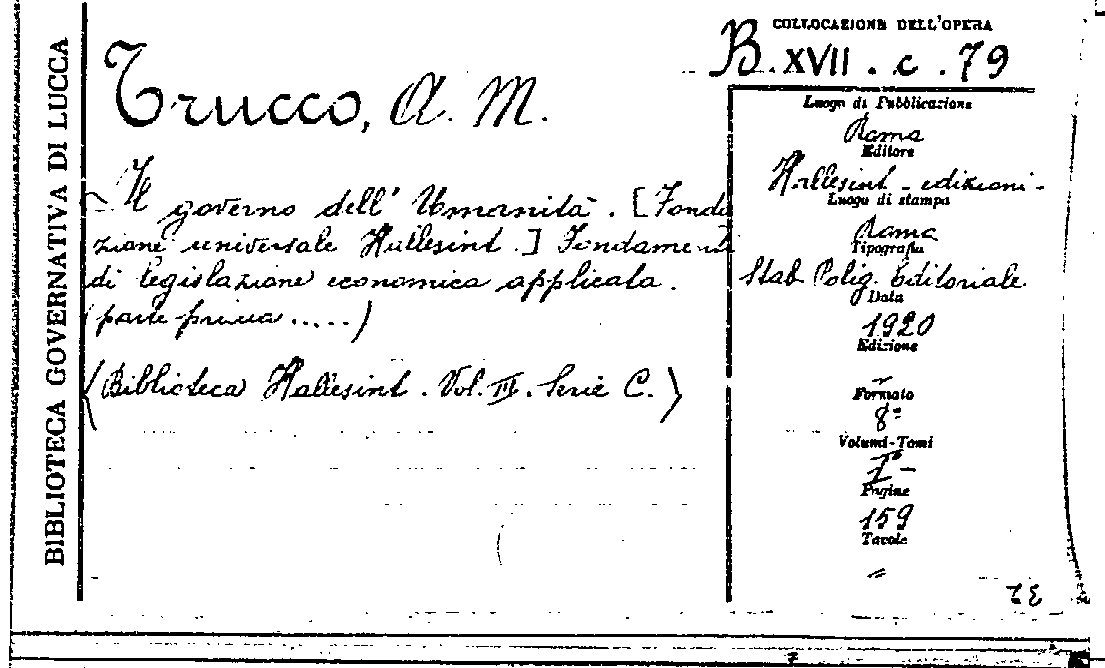 BIBLIOTECA GOVERNATIVA DI LUCCA
Trucco, A. M.
Il governo dell' Umanità. [Fonda
zione universale Hallesint.] Fondamenti
di legislazione economica applicata.
(parte prima.....)
(Biblioteca Hallesint. Vol. III. Serie C.)
COLLOCAZIONE DELL'OPERA
B. XVII. c. 79
Luogo di Pubblicazione
Roma
Editore
Hallesint - edizioni -
Luogo di stampa
Roma
Tipografia
Stab. Polig. Editoriale
Data
1920
Edizione
Formato
8º
Volumi-Tomi
Iº -
Pagine
159
Tavole